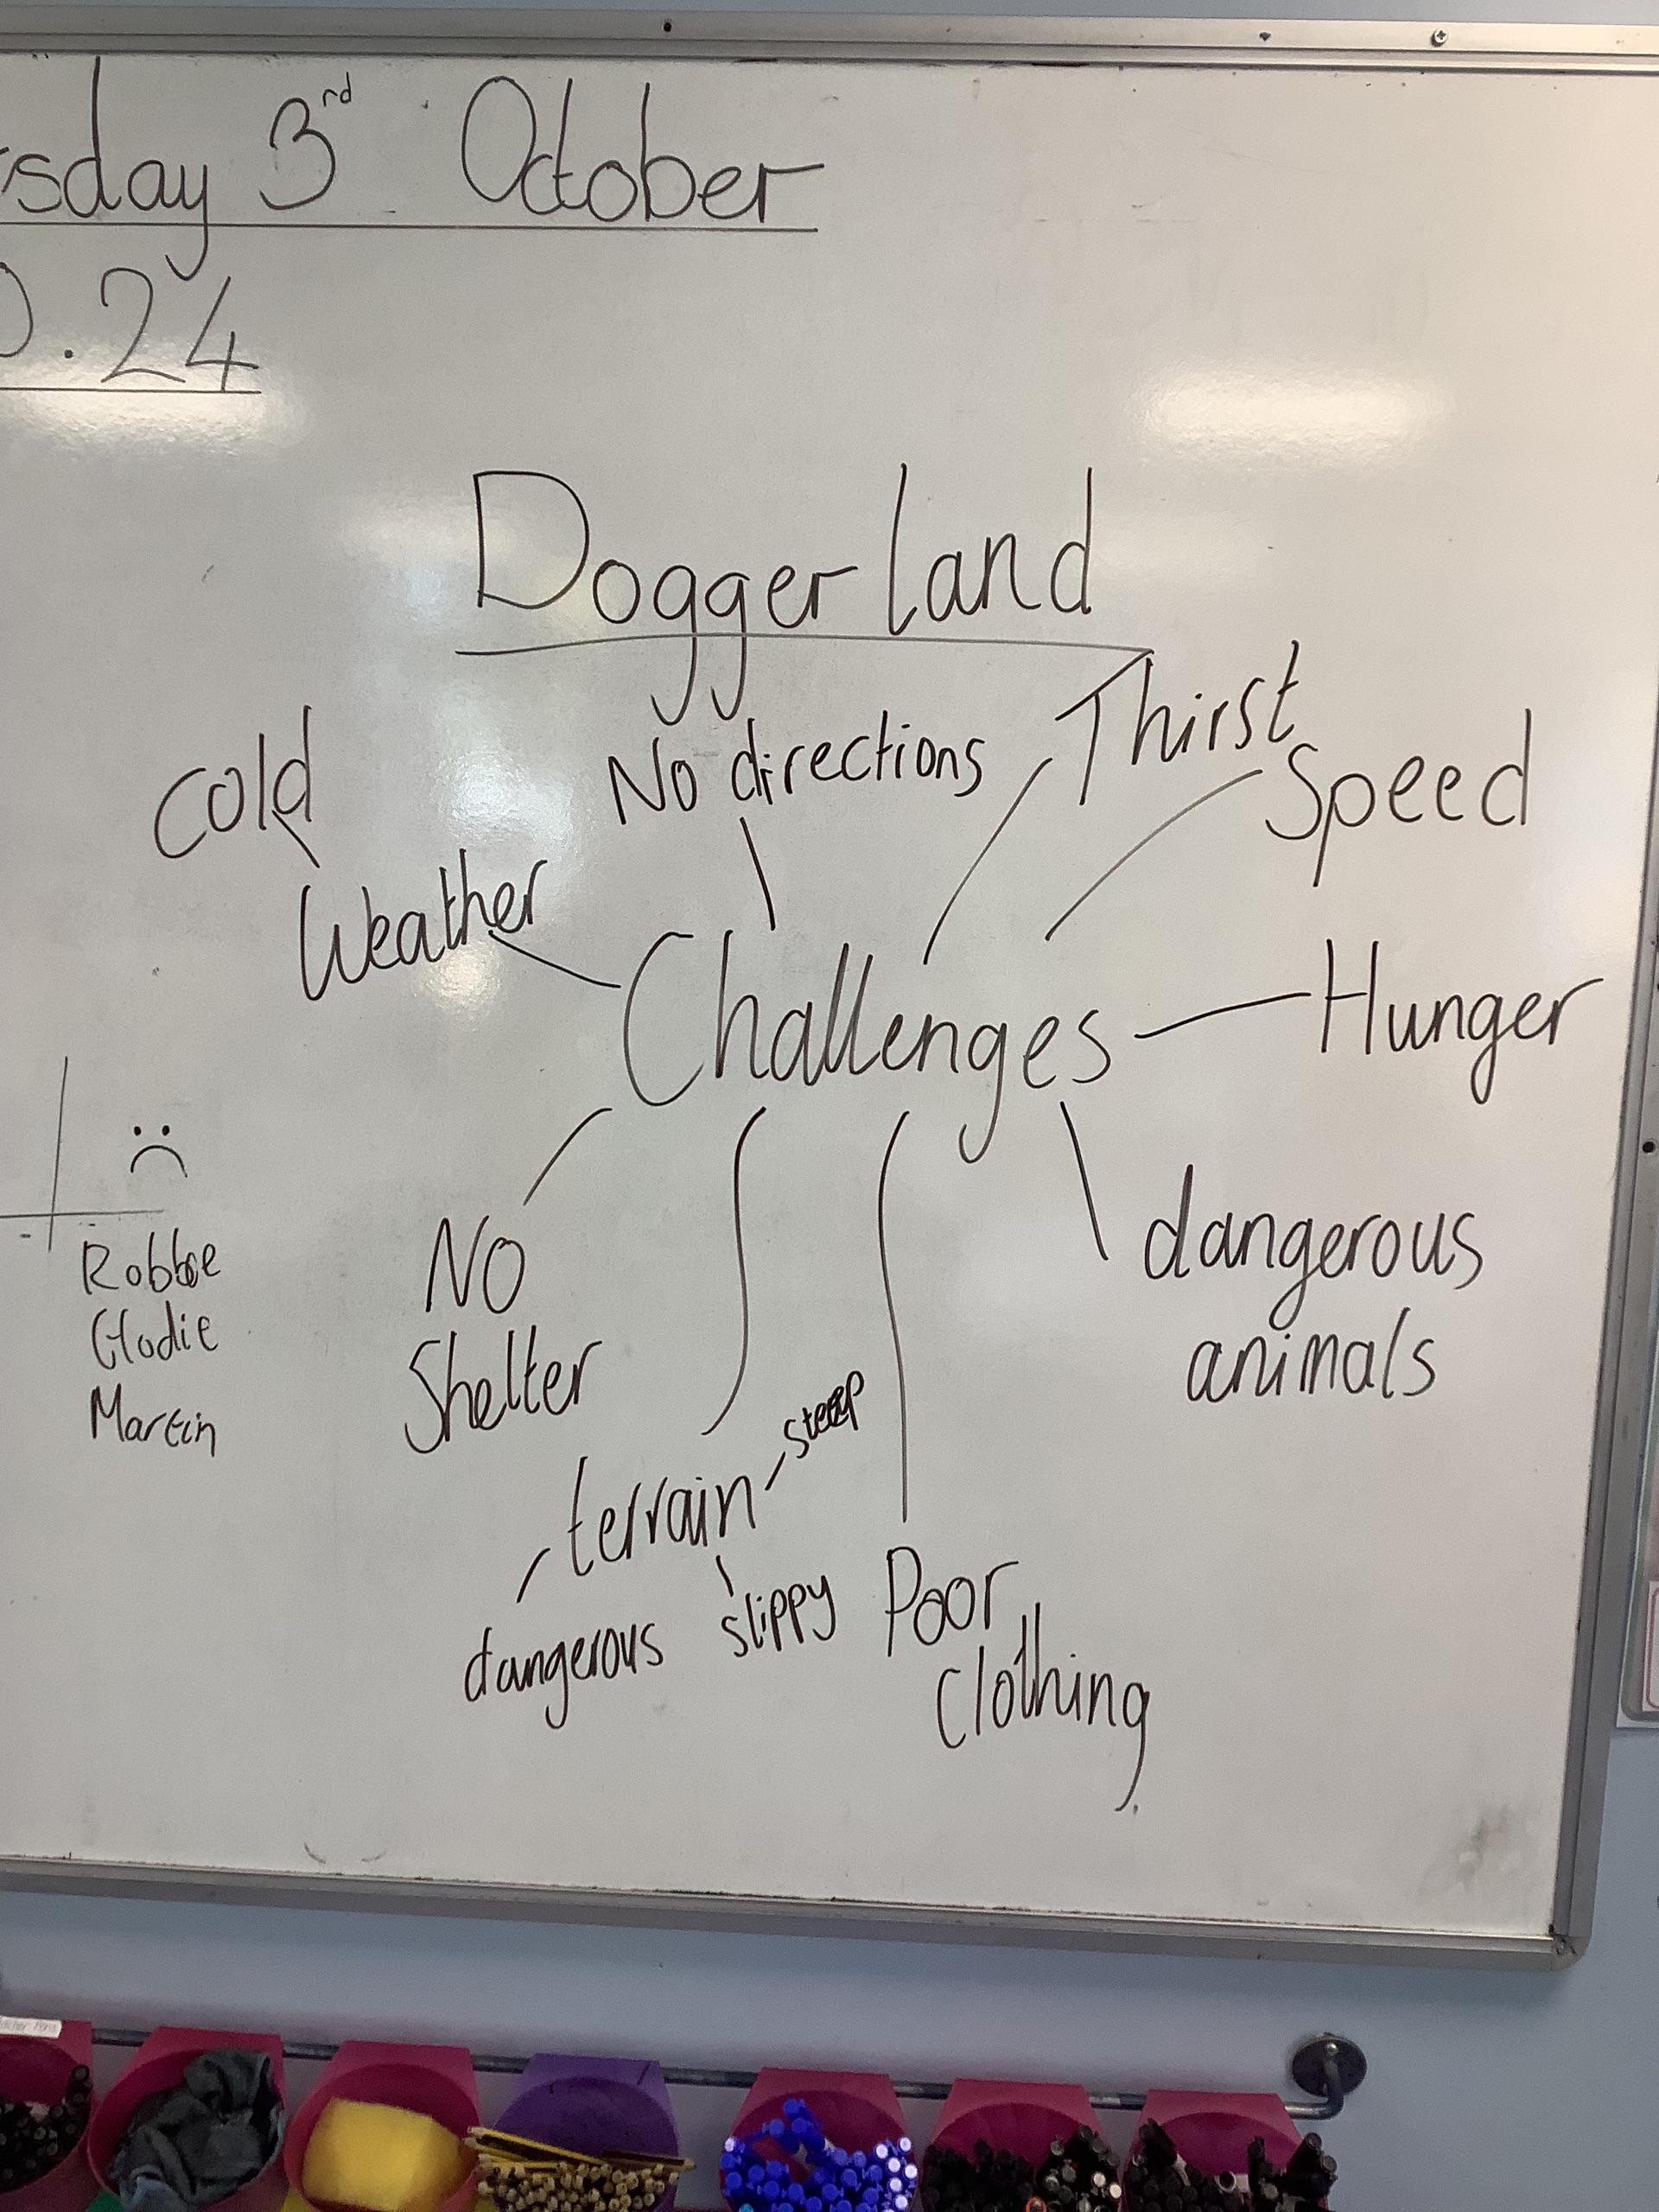 sday 3rd October
.24
Doggerland
Thirst
No directions
Speed
cold
Weather
Challenges
Hunger
dangerous
animals
No
Shelter
steep
terrain
dangerous
slippy
Poor
clothing
Martin